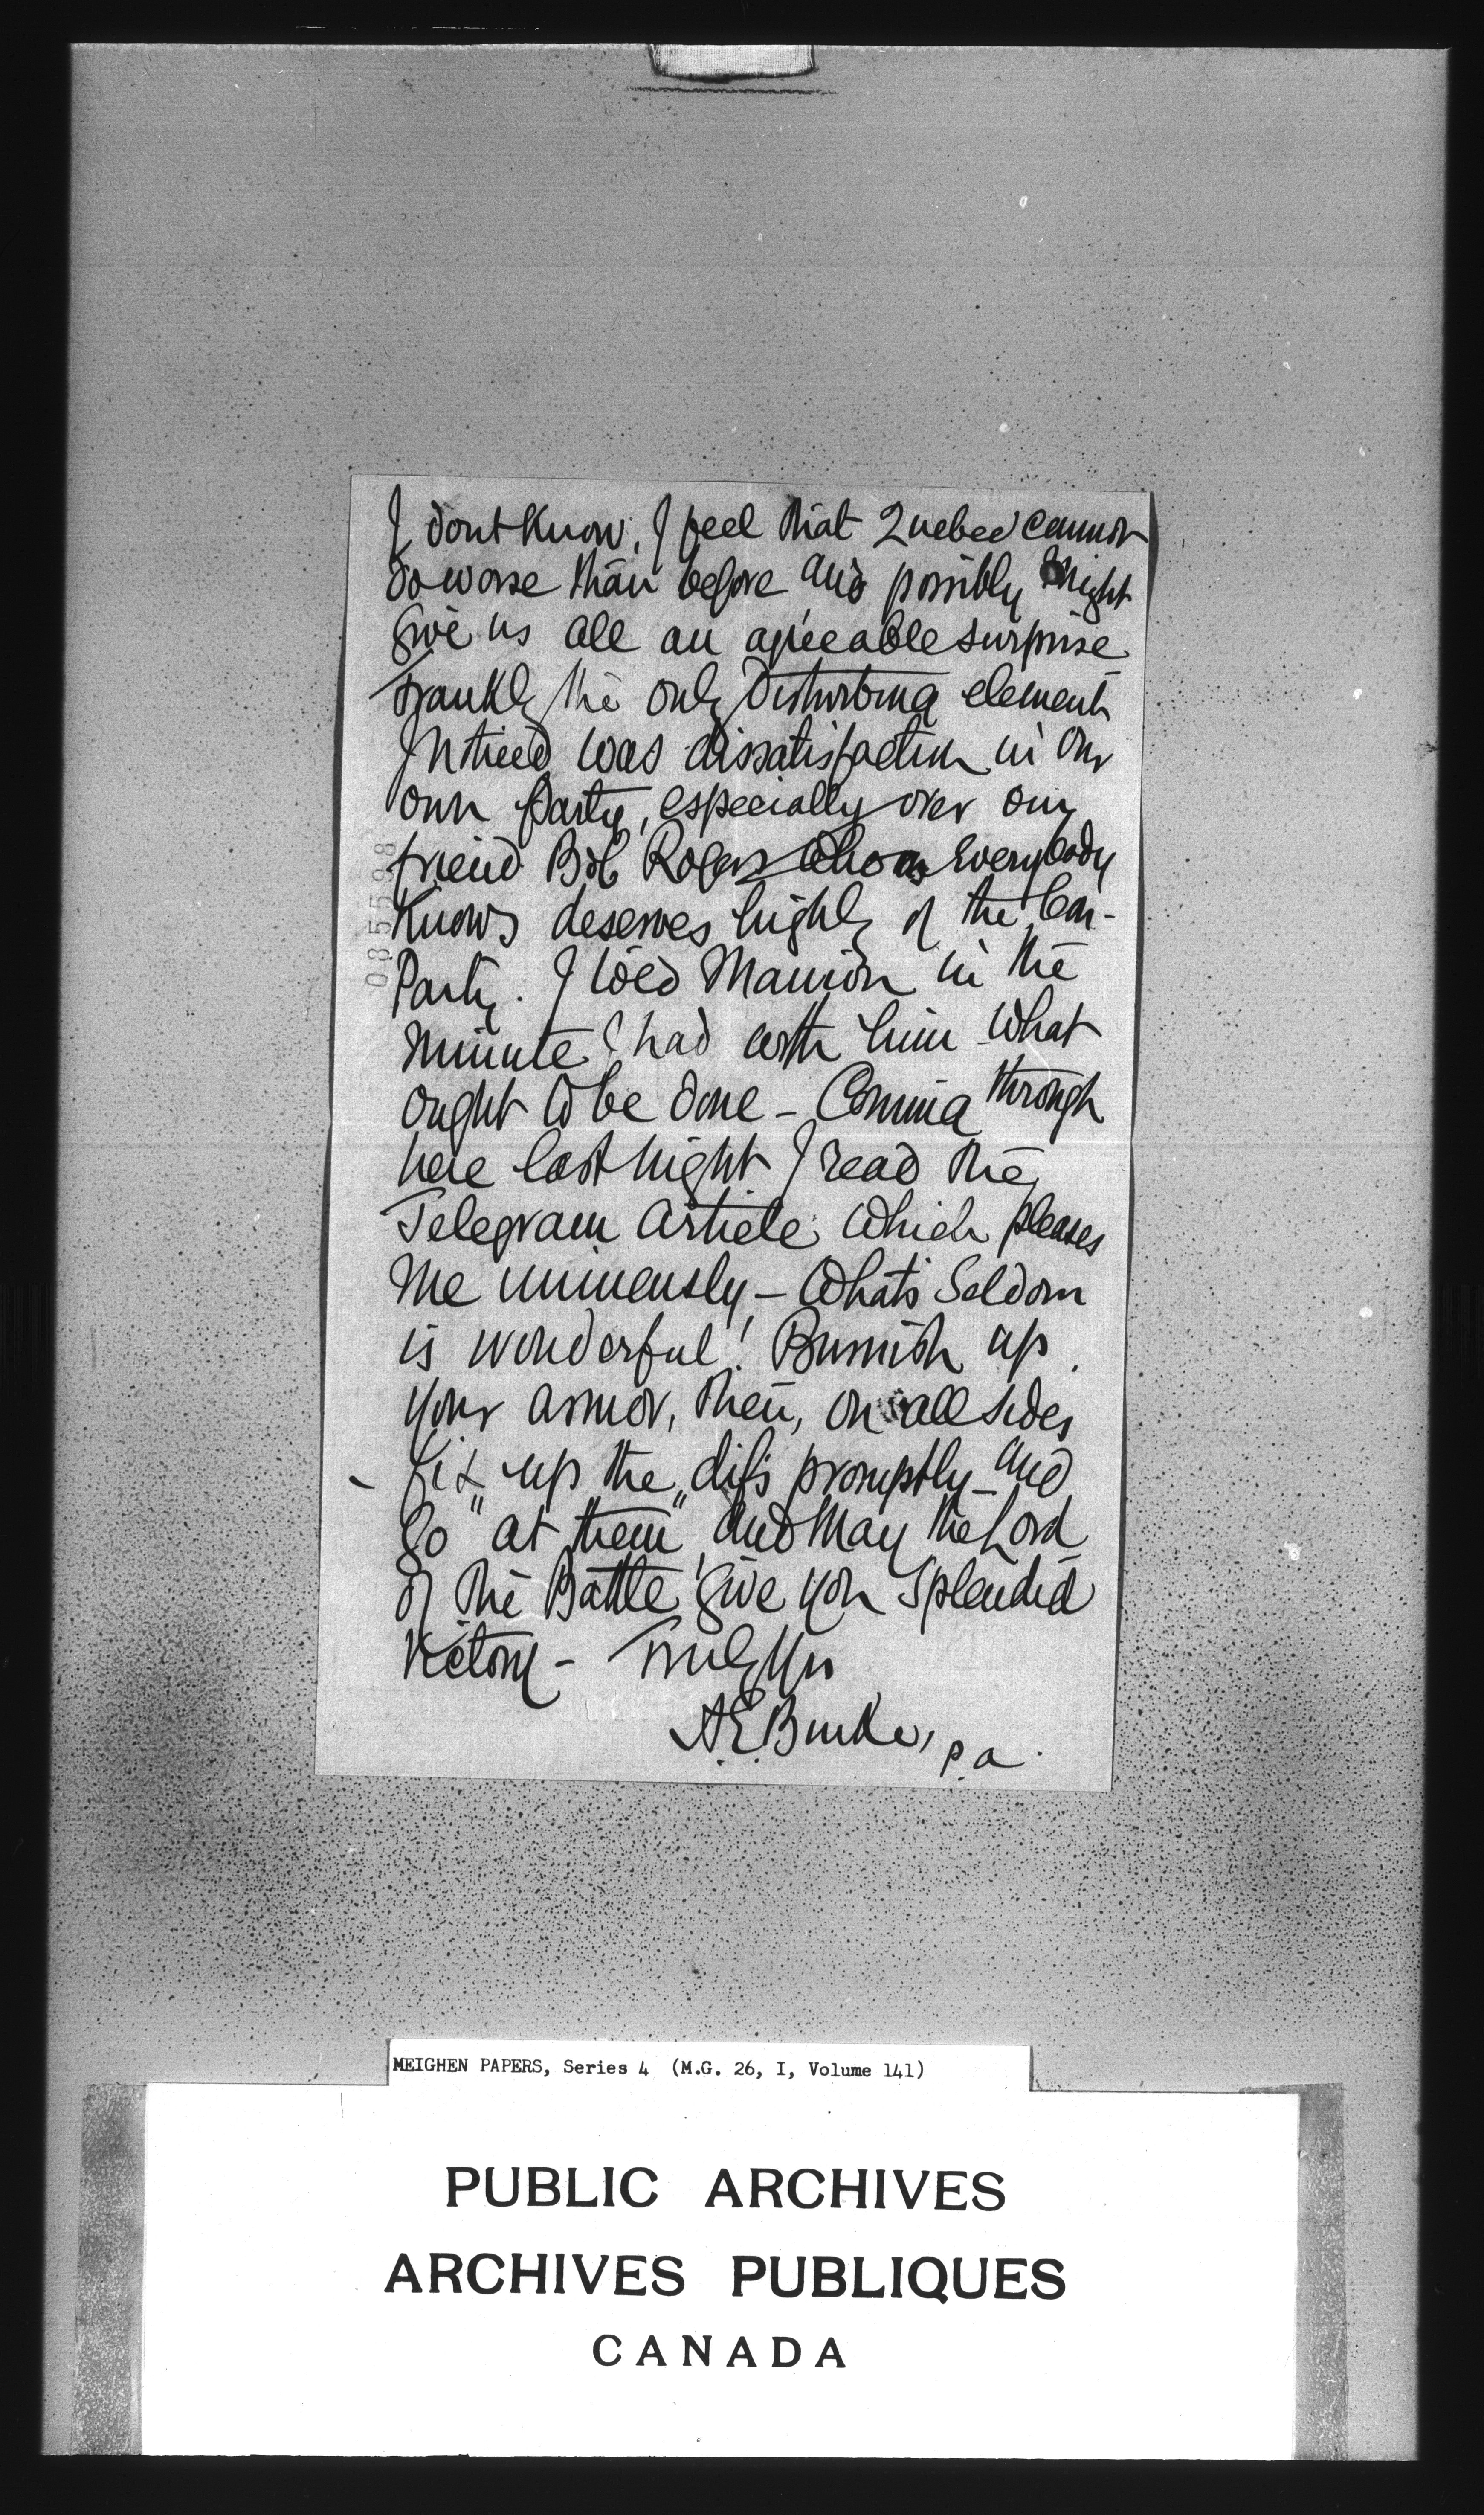 I dont Know; I feel that Quebec cannot
do worse than before and possibly might
give us all an agreeable surprise
Frankly the only disturbing element
I noticed was dissatisfaction in our
own party, especially over our
friend Bob Rogers whom everybody
Knows deserves highly of the Con-
Party. I told Manion in the
minute I had with him what
ought to be done - Coming through
here last night I read the
Telegram article which pleases
me immensely - What's Seldom
is wonderful! Burnish up
your armor, then, on all sides
- Fix up the difs promptly - and
go "at them" and may the Lord
of the Battle give you splendid
Victory - Truly Yrs
A.E. Burke, p.a.
085598
MEIGHEN PAPERS, Series 4 (M.G. 26, I, Volume 141)
PUBLIC ARCHIVES
ARCHIVES PUBLIQUES
CANADA